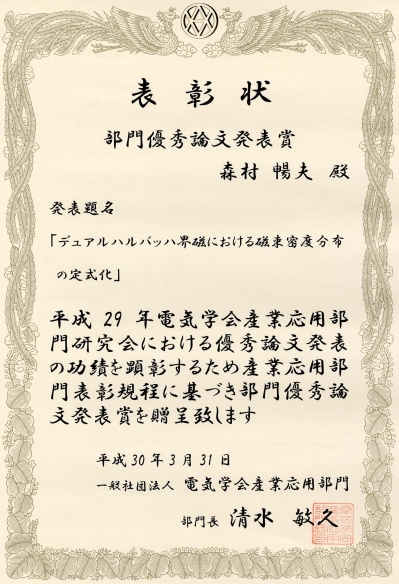 表彰状
部門優秀論文発表賞
森村 暢夫 殿
発表題名
「デュアルハルバッハ界磁における磁束密度分布
の定式化」
平成 29 年電気学会産業応用部
門研究会における優秀論文発表
の功績を顕彰するため産業応用部
門表彰規程に基づき部門優秀論
文発表賞を贈呈致します
平成30年3月31日
一般社団法人 電気学会産業応用部門
部門長 清水 敏久